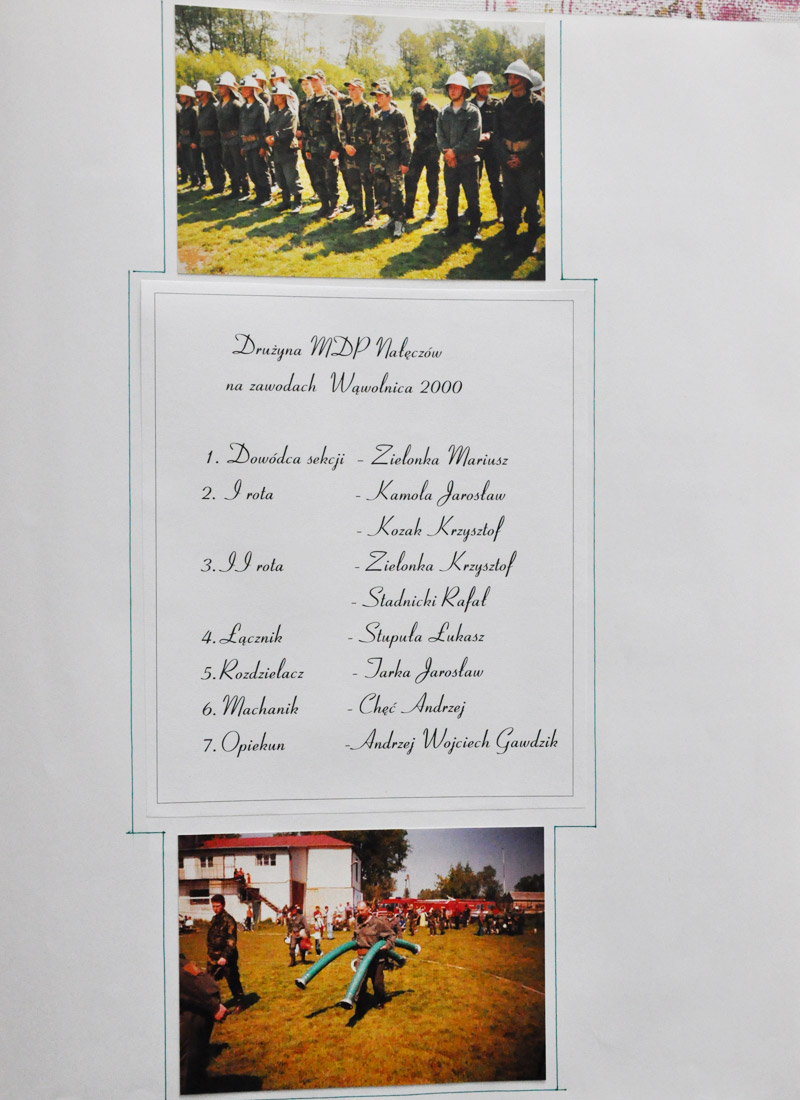 Drużyna MDP Nałęczów
na zawodach Wąwolnica 2000
1. Dowódca sekcji - Zielonka Mariusz
2. I rota - Kamola Jarosław
- Kozak Krzysztof
3. II rota - Zielonka Krzysztof
- Stadnicki Rafał
4. Łącznik - Stupuła Łukasz
5. Rozdzielacz - Tarka Jarosław
6. Machanik - Chęć Andrzej
7. Opiekun - Andrzej Wojciech Gawdzik